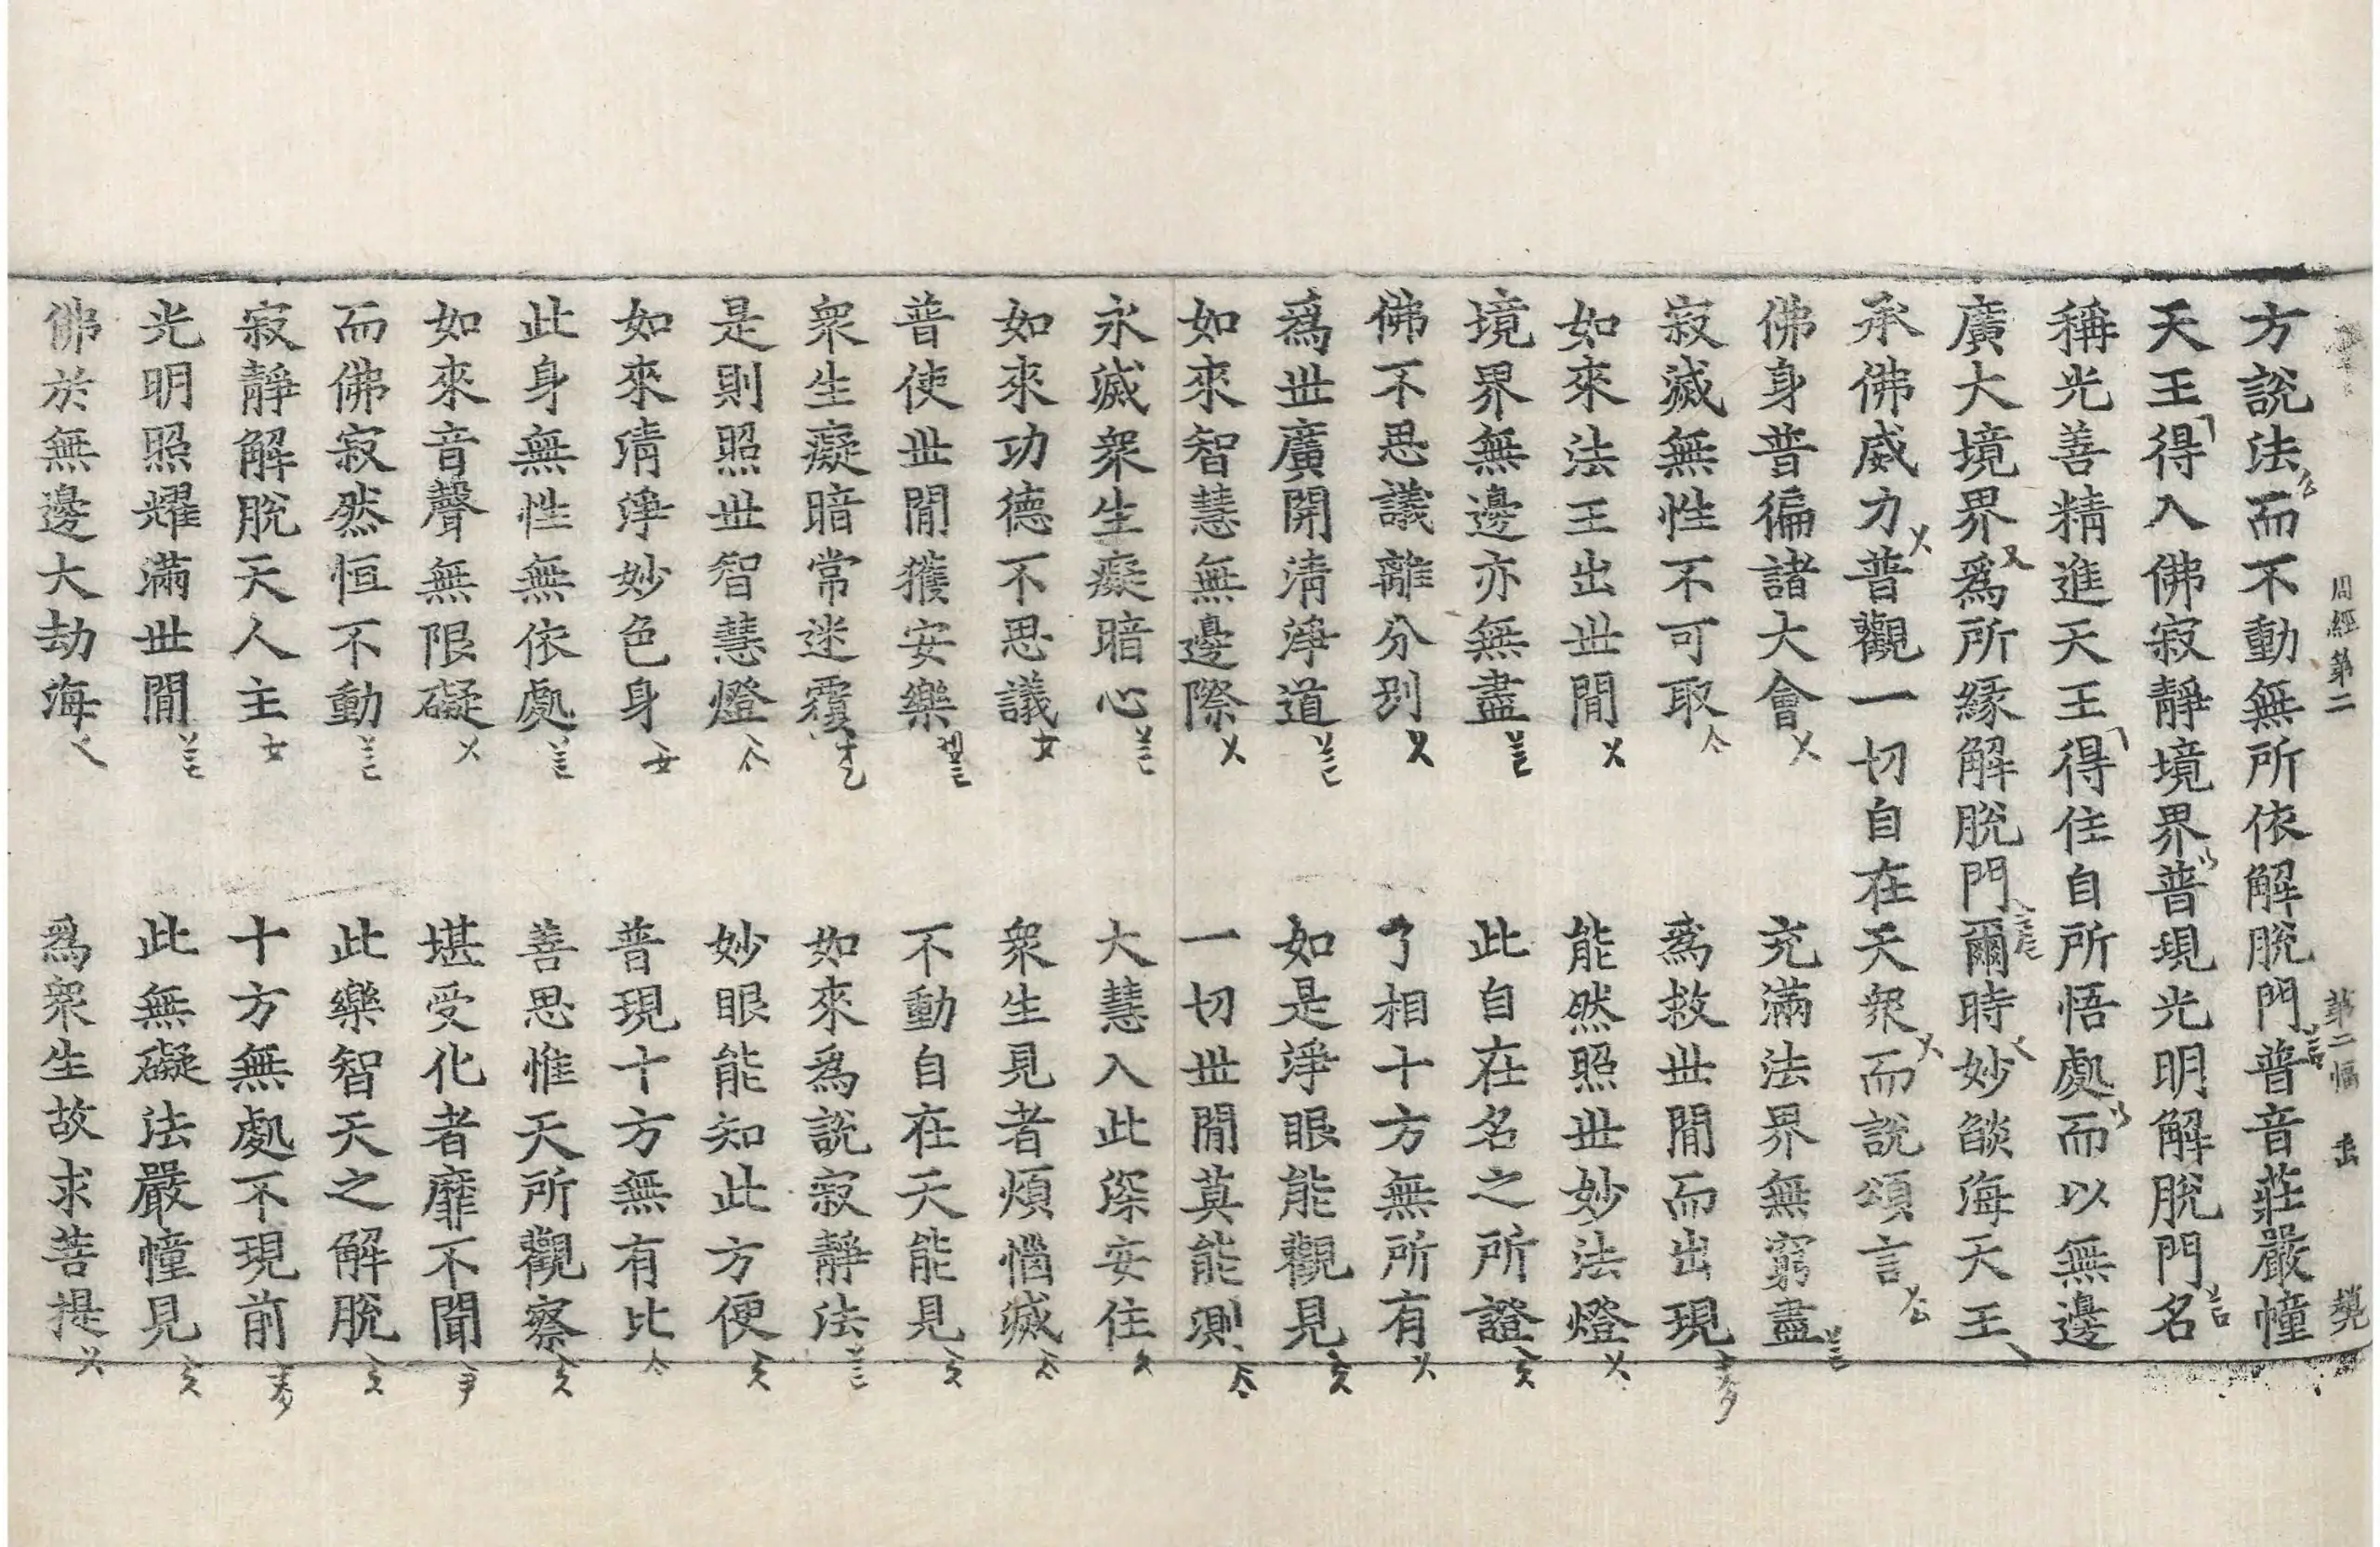 周經第二 第二幅 岳 彫
方說法而不動無所依解脫門普音莊嚴幢
天王得入佛寂靜境界普現光明解脫門名
稱光善精進天王得住自所悟處而以無邊
廣大境界爲所緣解脫門爾時妙燄海天王
承佛威力普觀一切自在天衆而說頌言
佛身普徧諸大會 充滿法界無窮盡
寂滅無性不可取 爲救世間而出現
如來法王出世間 能然照世妙法燈
境界無邊亦無盡 此自在名之所證
佛不思議離分別 了相十方無所有
爲世廣開清淨道 如是淨眼能觀見
如來智慧無邊際 一切世間莫能測
永滅衆生癡暗心 大慧入此深安住
如來功德不思議 衆生見者煩惱滅
普使世間獲安樂 不動自在天能見
衆生癡暗常迷覆 如來爲說寂靜法
是則照世智慧燈 妙眼能知此方便
如來清淨妙色身 普現十方無有比
此身無性無依處 善思惟天所觀察
如來音聲無限礙 堪受化者靡不聞
而佛寂然恒不動 此樂智天之解脫
寂靜解脫天人主 十方無處不現前
光明照耀滿世間 此無礙法嚴幢見
佛於無邊大劫海 爲衆生故求菩提